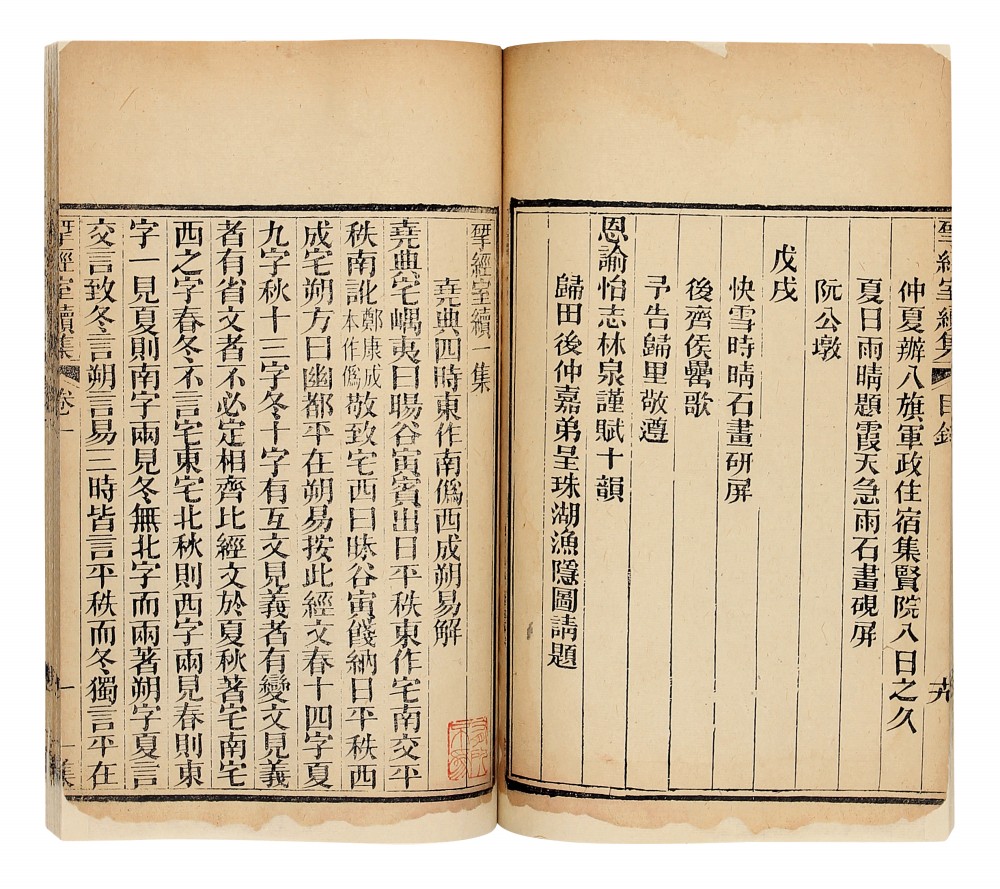 揅經室續集 目錄
仲夏辦八旗軍政住宿集賢院八日之久
夏日雨晴題霞天急雨石畫硯屏
阮公墩
戊戌
快雪時晴石畫研屏
後齊侯罍歌
予告歸里敬遵
恩諭怡志林泉謹賦十韻
歸田後仲嘉弟呈珠湖漁隱圖請題
揅經室續一集
堯典四時東作南僞西成朔易解
堯典宅嵎夷曰暘谷寅賓出日平秩東作宅南交平
秩南訛鄭康成本作僞敬致宅西曰昧谷寅餞納日平秩西
成宅朔方曰幽都平在朔易按此經文春十四字夏
九字秋十三字冬十字有互文見義者有變文見義
者有省文者不必定相齊比經文於夏秋著宅南宅
西之字春冬不言宅東宅北秋則西字兩見春則東
字一見夏則南字兩見冬無北字而兩著朔字夏言
交言致冬言朔言易三時皆言平秩而冬獨言平在
揅經室續集 卷一 一 一集